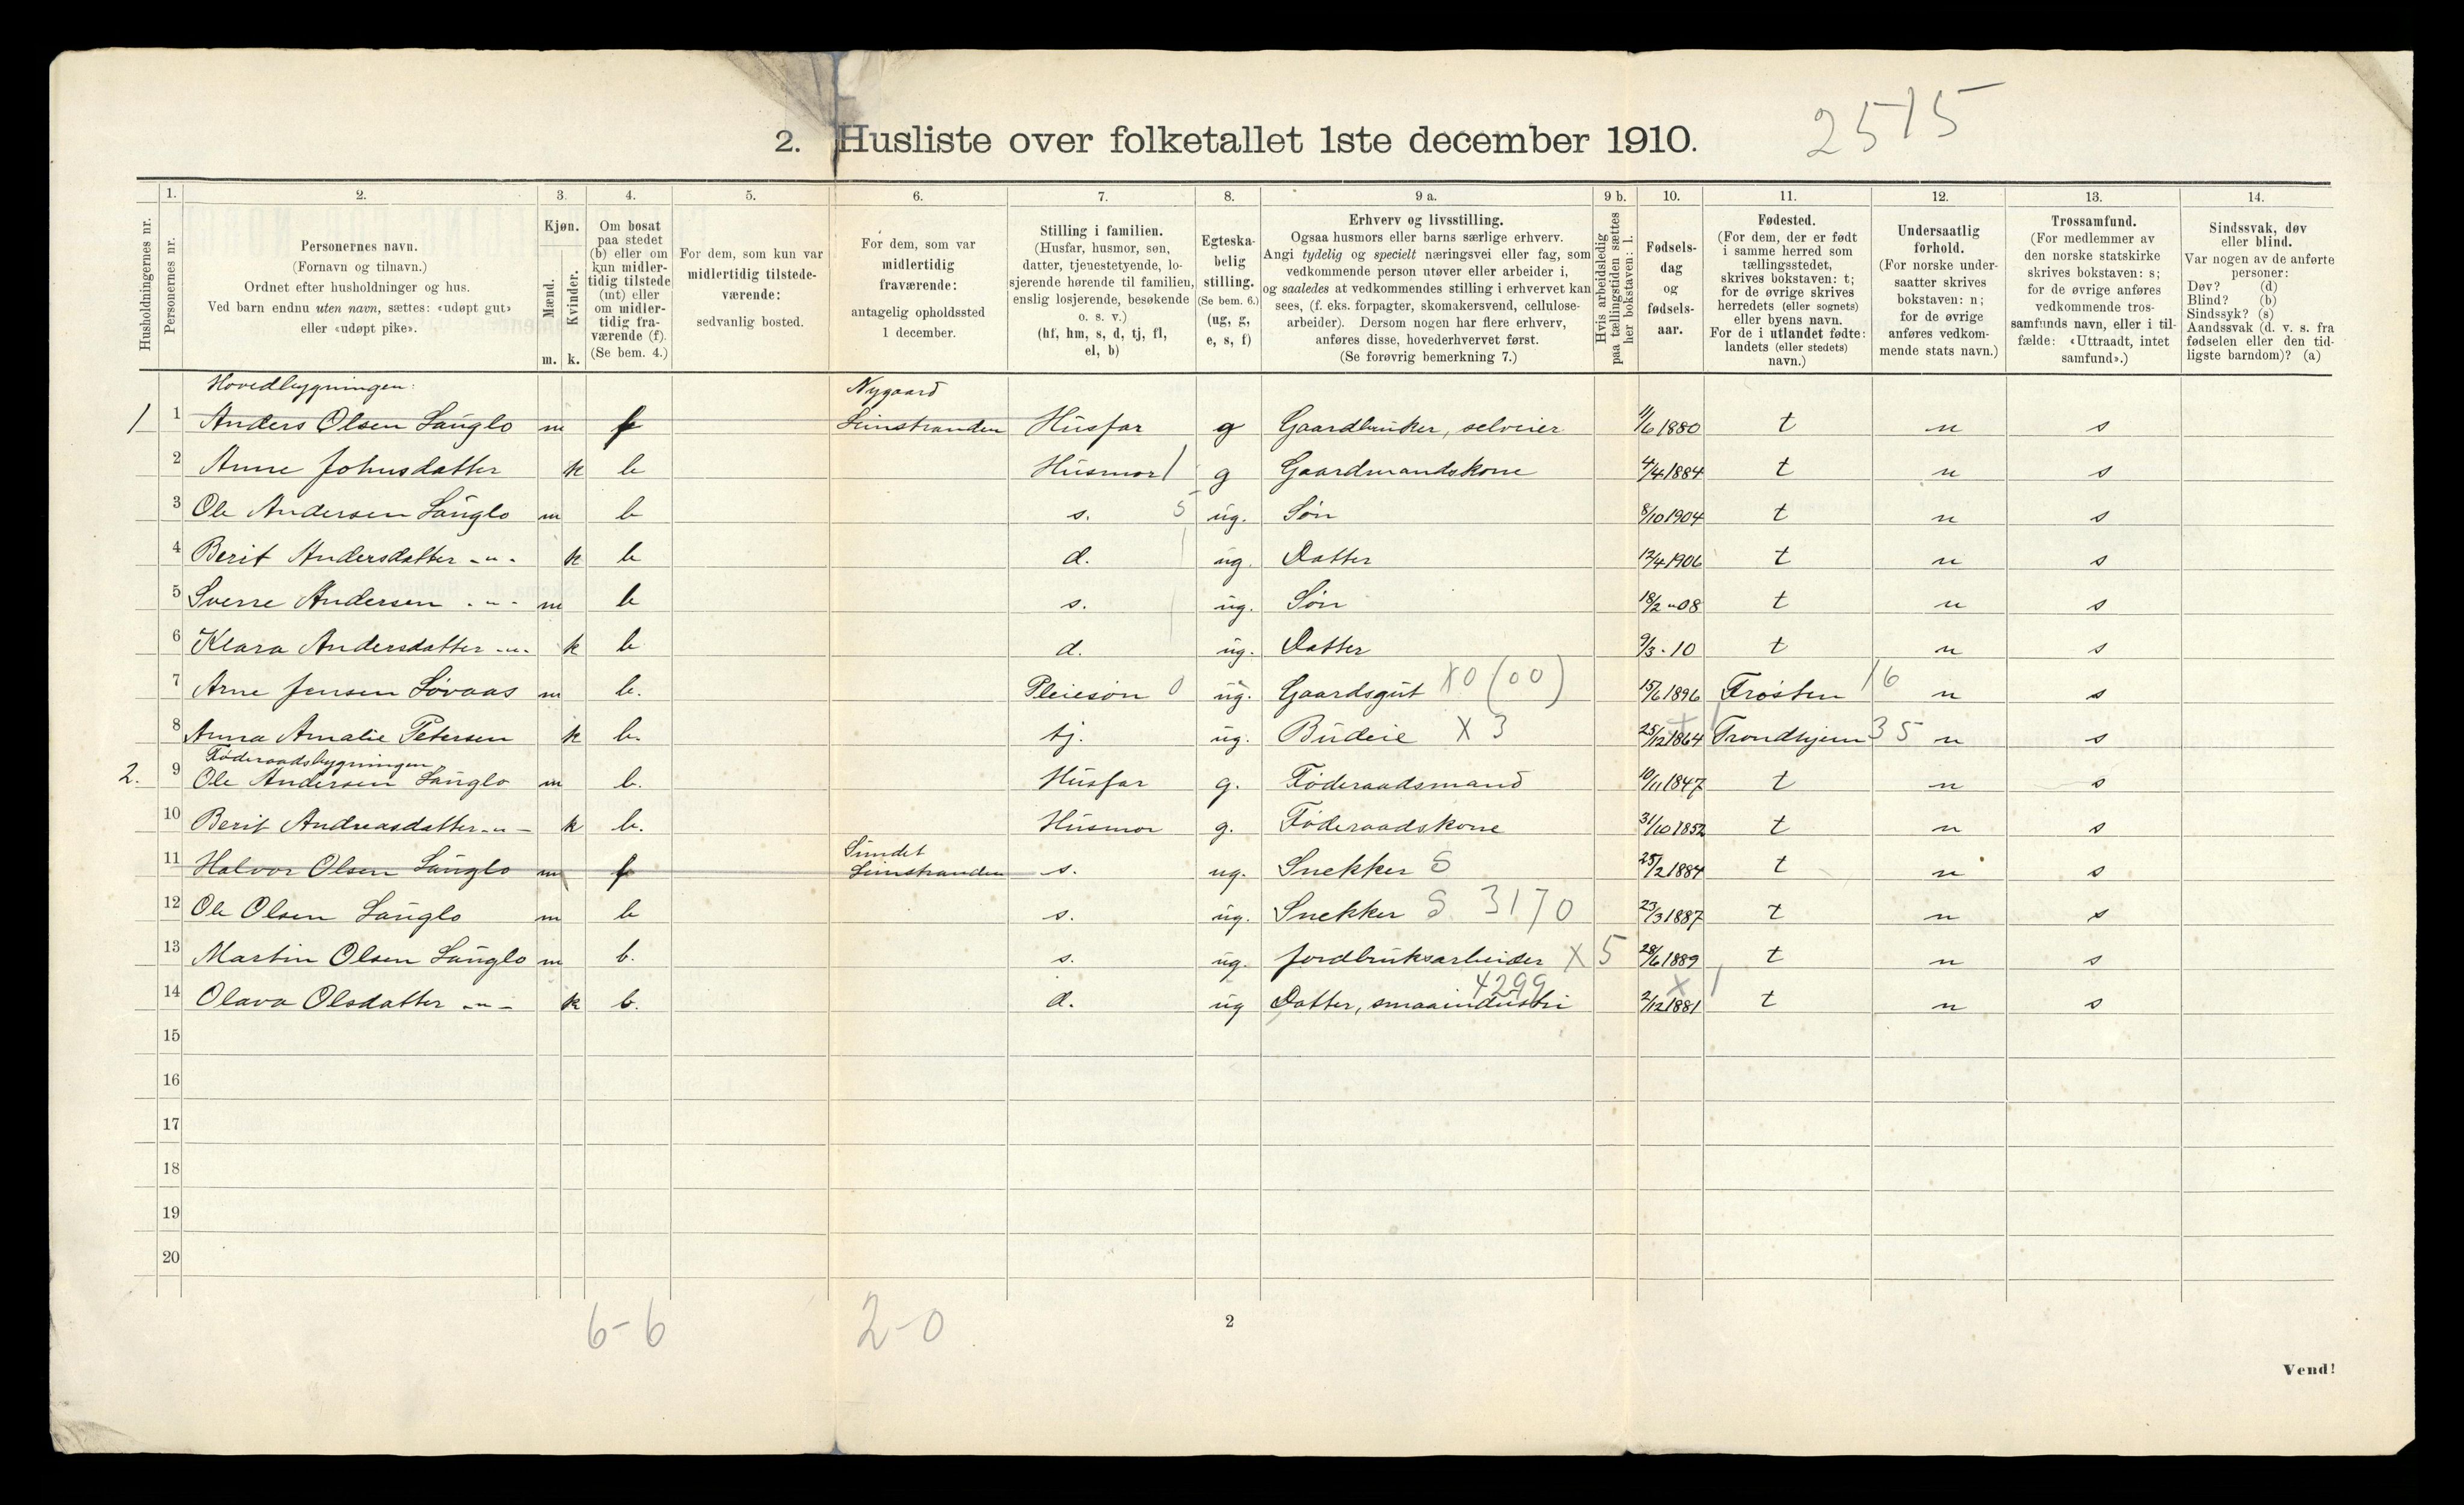 2515
2. Husliste over folketallet 1ste december 1910.
Husholdningernes nr.
1.
Personernes nr.
2.
Personernes navn.
(Fornavn og tilnavn.)
Ordnet efter husholdninger og hus.
Ved barn endnu uten navn, sættes: «udøpt gut»
eller «udøpt pike».
3.
Kjøn.
Mænd.
Kvinder.
m. k.
4.
Om bosat
paa stedet
(b) eller om
kun midler-
tidig tilstede
(mt) eller
om midler-
tidig fra-
værende (f).
(Se bem. 4.)
5.
For dem, som kun var
midlertidig tilstede-
værende:
sedvanlig bosted.
6.
For dem, som var
midlertidig
fraværende:
antagelig opholdssted
1 december.
7.
Stilling i familien.
(Husfar, husmor, søn,
datter, tjenestetyende, lo-
sjerende hørende til familien,
enslig losjerende, besøkende
o. s. v.)
(hf, hm, s, d, tj, fl,
el, b)
8.
Egteska-
belig
stilling.
(Se bem. 6.)
(ug, g,
e, s, f)
9 a.
Erhverv og livsstilling.
Ogsaa husmors eller barns særlige erhverv.
Angi tydelig og specielt næringsvei eller fag, som
vedkommende person utøver eller arbeider i,
og saaledes at vedkommendes stilling i erhvervet kan
sees, (f. eks. forpagter, skomakersvend, cellulose-
arbeider). Dersom nogen har flere erhverv,
anføres disse, hovederhvervet først.
(Se forøvrig bemerkning 7.)
9 b.
Hvis arbeidsledig
paa tællingstiden sættes
her bokstaven: l.
10.
Fødsels-
dag
og
fødsels-
aar.
11.
Fødested.
(For dem, der er født
i samme herred som
tællingsstedet,
skrives bokstaven: t;
for de øvrige skrives
herredets (eller sognets)
eller byens navn.
For de i utlandet fødte:
landets (eller stedets)
navn.)
12.
Undersaatlig
forhold.
(For norske under-
saatter skrives
bokstaven: n;
for de øvrige
anføres vedkom-
mende stats navn.)
13.
Trossamfund.
(For medlemmer av
den norske statskirke
skrives bokstaven: s;
for de øvrige anføres
vedkommende tros-
samfunds navn, eller i til-
fælde: «Uttraadt, intet
samfund».)
14.
Sindssvak, døv
eller blind.
Var nogen av de anførte
personer:
Døv? (d)
Blind? (b)
Sindssyk? (s)
Aandssvak (d. v. s. fra
fødselen eller den tid-
ligste barndom)? (a)
Hovedbygningen: Nygaard
1 1 Anders Olsen Langlo m f Leinstranden Husfar g Gaardbruker, selveier 11/6 1880 t n s
2 Anne Johnsdatter k b Husmor 1 g Gaardmandskone 4/4 1884 t n s
3 Ole Andersen Langlo m b s. 5 ug. Søn 8/10 1904 t n s
4 Berit Andersdatter -"- k b d. ug. Datter 12/4 1906 t n s
5 Sverre Andersen -"- m b s. ug. Søn 18/2 "08 t n s
6 Klara Andersdatter -"- k b d. ug. Datter 9/3 - 10 t n s
7 Arne Jensen Løvaas m b. Pleiesøn 0 ug. Gaardsgut X0 (00) 15/6 1896 Frosten 16 n s
8 Anna Amalie Petersen k b. tj. ug. Budeie X 3 25/12 1864 Trondhjem 35 n s
Føderaadsbygningen
2. 9 Ole Andersen Langlo m b. Husfar g. Føderaadsmand 10/11 1847 t n s
10 Berit Andreasdatter -"- k b. Husmor g. Føderaadskone 31/10 1852 t n s
Sundet
11 Halvor Olsen Langlo m f Leinstranden s. ug. Snekker S 25/2 1884 t n s
12 Ole Olsen Langlo m b s. ug. Snekker S 3170 23/3 1887 t n s
13 Martin Olsen Langlo m b. s. ug. Jordbruksarbeider X 5 28/6 1889 t n s
4299 X 1
14 Olava Olsdatter -"- k b. d. ug Datter, smaaindustri 2/12 1881 t n s
15
16
17
18
19
20
6-6 2-0
2
Vend!